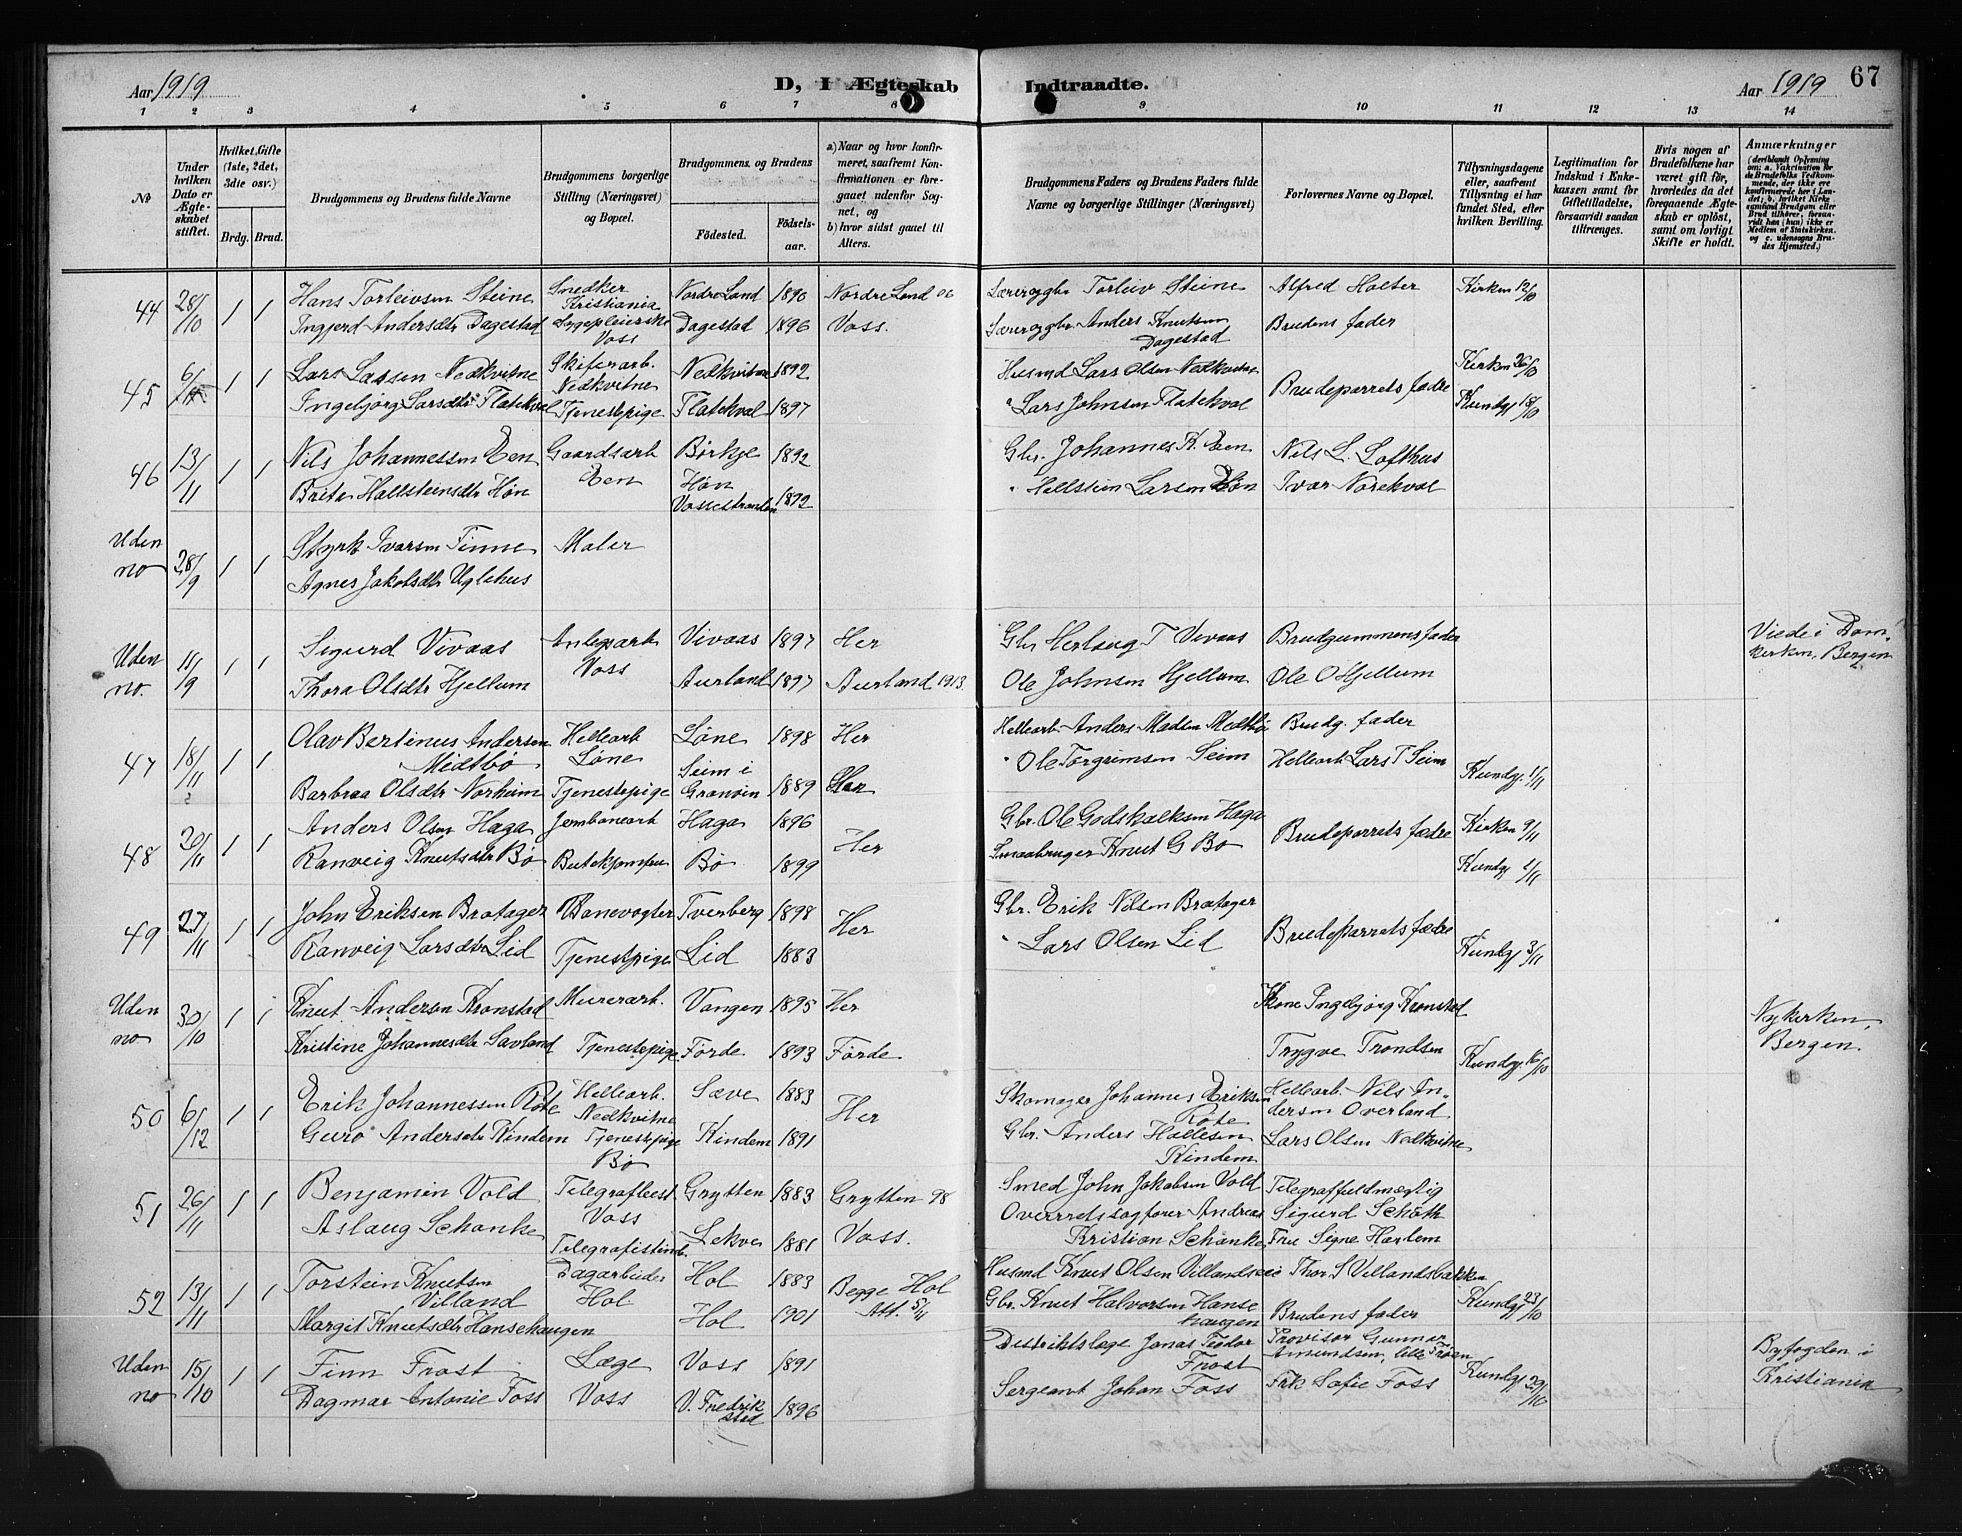 Aar 1919
D, I Ægteskab
Indtraadte.
Aar 1919
67
1 2 3 4 5 6 7 8 9 10 11 12 13 14
No
Under hvilken Dato er Ægteskabet stiftet.
Hvilket Gifte (1ste, 2det, 3die osv.)
Brdg. Brud.
Brudgommens og Brudens fulde Navne
Brudgommens borgerlige Stilling (Næringsvei) og Bopæl.
Brudgommens og Brudens
Fødested.
Fødselsaar.
a) Naar og hvor konfirmeret, saafremt Konfirmationen er foregaaet udenfor Sognet, og
b) hvor sidst gaaet til Alters.
Brudgommens Faders og Brudens Faders fulde Navne og borgerlige Stillinger (Næringsvei)
Forlovernes Navne og Bopæl.
Tillysningsdagene eller, saafremt Tillysning ei har fundet Sted, efter hvilken Bevilling.
Legitimation for Indskud i Enkekassen samt for Giftetilladelse, forsaavidt saadan tiltrænges.
Hvis nogen af Brudefolkene har været gift før, hvorledes da det foregaaende Ægteskab er opløst, samt om lovligt Skifte er holdt.
Anmærkninger
(deriblandt Oplysning om: a. Vakcination for de Brudefolks Vedkommende, der ikke ere konfirmerede her i Landet; b. hvilket Kirkesamfund Brudgom eller Brud tilhører, forsaavidt han (hun) ikke er Medlem af Statskirken, og c. udensogns Brudes Hjemsted.)
44 28/10 1 1 Hans Torleivsen Steine Snedker Kristiania Nordre Land 1890 Nordre Land 06 Torleiv Steine Alfred Holter Kirken 12/10
Ingjerd Andersdtr Dagestad Sygepleierske Voss Dagestad 1896 Voss. Anders Knutsen Dagestad Brudens fader
45 6/11 1 1 Lars Larsen Nedkvitne Skiferarb. Nedkvitne Nedkvitne 1892 Husmd Lars Olsen Nedkvitne Brudeparrets fædre Kirken 26/10
Ingebjørg Larsdtr Flatekval Tjenestpige Flatekval 1897 " Lars Johnsen Flatekval Kundgj 18/10
46 13/11 1 1 Nils Johannessen Een Gaardsarb Een Børkje 1892 Gbr. Johannes K. Een Nils L. Lofthus
Brita Hallsteinsdtr Høn Høn Vossestranden 1892 " Hellstein Larsen Høn Ivar Norekval
Uden no 28/9 1 1 Styrk Ivarsen Finne Maler
Agnes Jakobsdtr Uglehus
Uden no. 11/9 1 1 Sigurd Vivaas Anlegsarb Voss Vivaas 1897 Her Gbr Herlaug T Vivaas Brudgummens fader Viede i Domkirken, Bergen
Thora Olsdtr Hjellum Aurland 1897 Aurland 1913. Ole Johnsen Hjellum Ole O Hjellum
47 18/11 1 1 Olav Bertinus Andersen Midtbø Hellearb Løne Løne 1898 Her Hellearb. Anders Madsen Midtbø Brudg. fader
Barbraa Olsdtr Norheim Tjenestepige Seim i Granvin 1889 Her " Ole Torgrimsen Seim Hellearb Lars T Seim Kundgj. 1/11
48 20/11 1 1 Anders Olsen Haga Jernbanearb Haga 1896 Her Gbr. Ole Godskalksen Haga Brudeparrets fædre Kirken 9/11
Ranveig Knutsdtr Bø Bø 1899 Smaabruger Knut G Bø Kundgj 1/11
49 27/11 1 1 John Eriksen Bratager Banevogter Tverberg 1898 Her Gbr. Erik Nilsen Bratager Brudeparrets fædre
Ranveig Larsdtr Lid Tjenestpige Lid 1883 " Lars Olsen Lid Kundgj 3/11
Uden no 30/10 1 1 Knut Andersen Kronstad Murerarb. Vangen 1895 Her Kone Ingebjørg Kronstad Nykirken, Bergen.
Kristine Johannesdtr Savland Tjenestepige Førde 1893 Førde Trygve Trondsen Kundgj. 16/10
50 6/12 1 1 Erik Johannessen Røte Hellearb. Nedkvitne Sæve 1883 Her Skomager Johannes Eriksen Røte Hellearb. Nils Andersen Overland
Guro Andersdtr Kindem Tjenestpige Bø Kindem 1891 Gbr. Anders Hallesen Kindem Lars Olsen Nedkvitne
51 26/11 1 1 Benjamin Vold Telegrafbest Voss Grytten 1883 Grytten 98 Smed John Jakobsen Vold Telegraffuldmægtig Sigurd Schøth
Aslaug Schanke Telegrafistinde Lekve 1881 Voss. Overretssagfører Andreas Kristian Schanke Fru Signe Harlem
52 13/11 1 1 Torstein Knutsen Villand Dagarbeider Hol Hol 1883 Begge Hol Att. 5/11 Husmd Knut Olsen Villandseie Thor S Villandsbakken Kundgj 23/10
Margit Knutsdtr Hansehaugen Hol 1901 Gbr. Knut Halvorsen Hansehaugen Brudens fader
Uden no 15/10 1 1 Finn Frost Læge Voss Voss 1891 Distriktslæge Jonas Teodor Frost Provisor Gunnar Amundsen, Lille Frøen Kundgj 29/10 Byfogden i Kristiania
Dagmar Antonie Foss V. Fredrikstad 1896 Sergeant Johan Foss Frk Sofie Foss